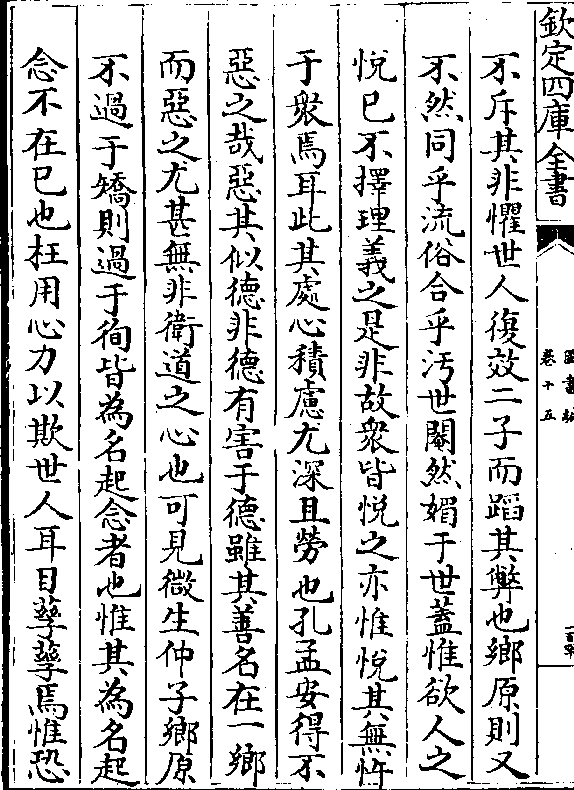 欽定四庫全書
圖書編
卷十五
不斥其非懼世人復效二子而蹈其弊也鄉原則又
不然同乎流俗合乎汚世閹然媚于世蓋惟欲人之
悅已不擇理義之是非故衆皆悅之亦惟悅其無忤
于衆焉耳此其處心積慮尤深且勞也孔孟安得不
惡之哉惡其似德非德有害于德雖其善名在一鄉
而惡之尤甚無非衛道之心也可見微生仲子鄉原
不過于矯則過于徇皆為名起念者也惟其為名起
念不在已也枉用心力以欺世人耳目孳孳焉惟恐